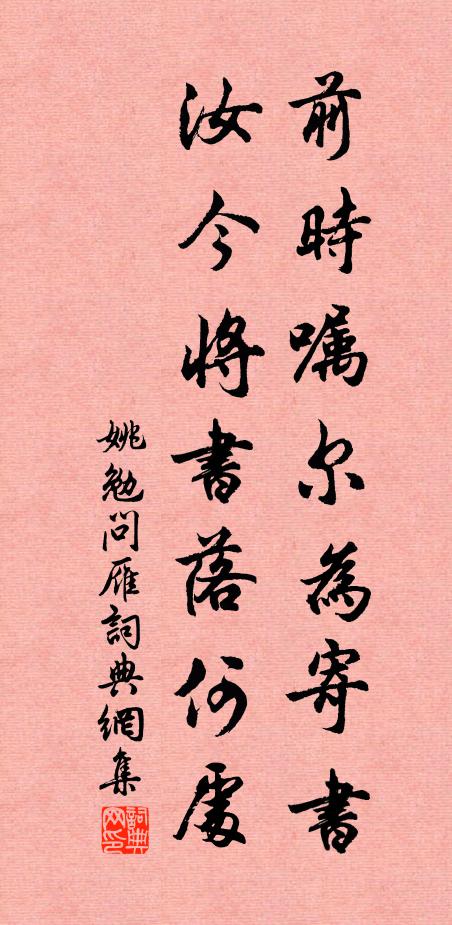 前時嘱尔為寄書
汝今將書落何處
姚勉問雁詞典網集
詞典网印